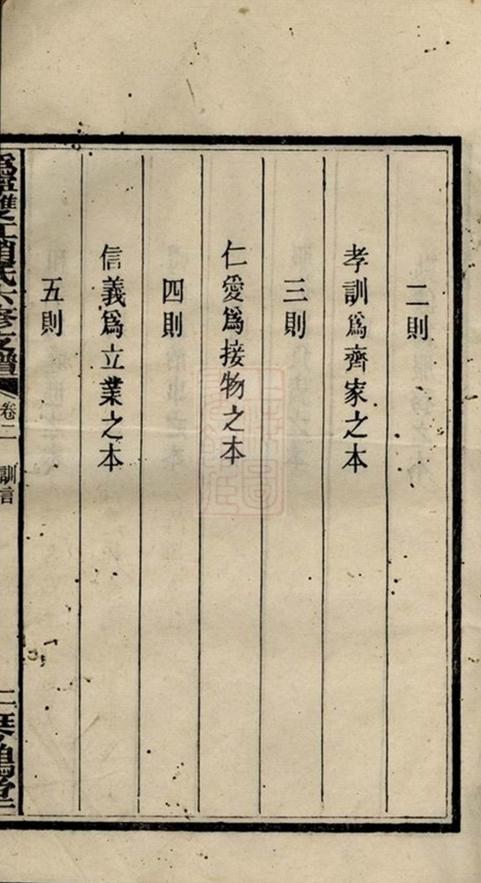 二則
孝訓爲齊家之本
三則
仁愛爲接物之本
四則
信義爲立業之本
五則
雙江趙氏六修支譜
卷二
訓言
二
琴鶴堂